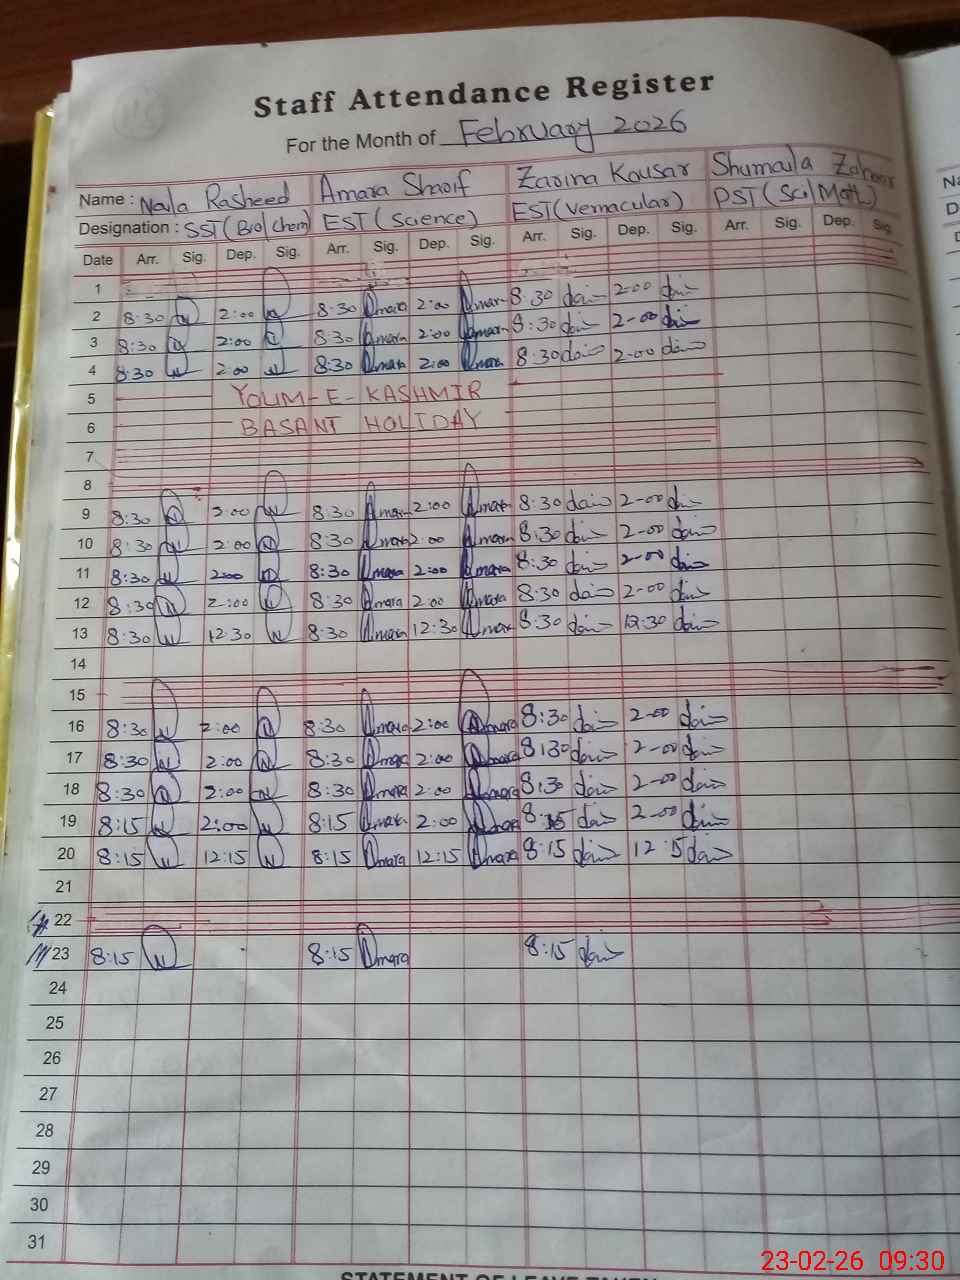 Staff Attendance Register
For the Month of February 2026
Name : Nayla Rasheed Amara Sharif Zarina Kousar Shumaila Zaheer
Designation : SST (Bio/chem) EST (Science) EST (Vernacular) PST (Sci/Math)
Date Arr. Sig. Dep. Sig. Arr. Sig. Dep. Sig. Arr. Sig. Dep. Sig. Arr. Sig. Dep. Sig.
1
2 8:30 2:00 8:30 Amara 2:00 Amara 8:30 2-00
3 8:30 2:00 8:30 Amara 2:00 Amara 8:30 2-00
4 8:30 2:00 8:30 Amara 2:00 Amara 8:30 2-00
5 YOUM-E-KASHMIR
6 BASANT HOLIDAY
7
8
9 8:30 2:00 8:30 Amara 2:00 Amara 8:30 2-00
10 8:30 2:00 8:30 Amara 2:00 Amara 8:30 2-00
11 8:30 2:00 8:30 Amara 2:00 Amara 8:30 2-00
12 8:30 2:00 8:30 Amara 2:00 Amara 8:30 2-00
13 8:30 12:30 8:30 Amara 12:30 Amara 8:30 12:30
14
15
16 8:30 2:00 8:30 Amara 2:00 Amara 8:30 2-00
17 8:30 2:00 8:30 Amara 2:00 Amara 8:30 2-00
18 8:30 2:00 8:30 Amara 2:00 Amara 8:30 2-00
19 8:15 2:00 8:15 Amara 2:00 Amara 8:15 2-00
20 8:15 12:15 8:15 Amara 12:15 Amara 8:15 12:15
21
22
23 8:15 8:15 Amara 8:15
24
25
26
27
28
29
30
31
STATEMENT OF LEAVE TAKEN
23-02-26 09:30